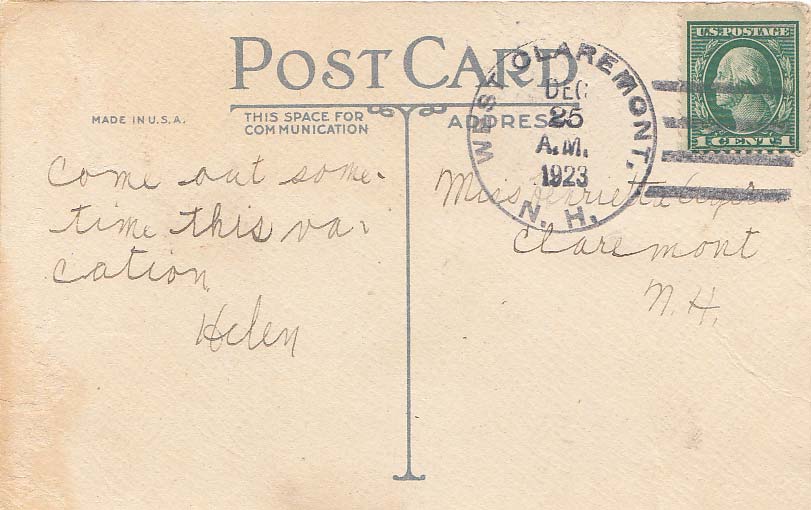 POST CARD
MADE IN U.S.A.
THIS SPACE FOR
COMMUNICATION
ADDRESS
WEST CLAREMONT,
N. H.
DEC
25
A.M.
1923
U.S. POSTAGE
1 CENT 1
Come out some-
time this va-
cation
Helen
Miss Henrietta
Claremont
N.H.